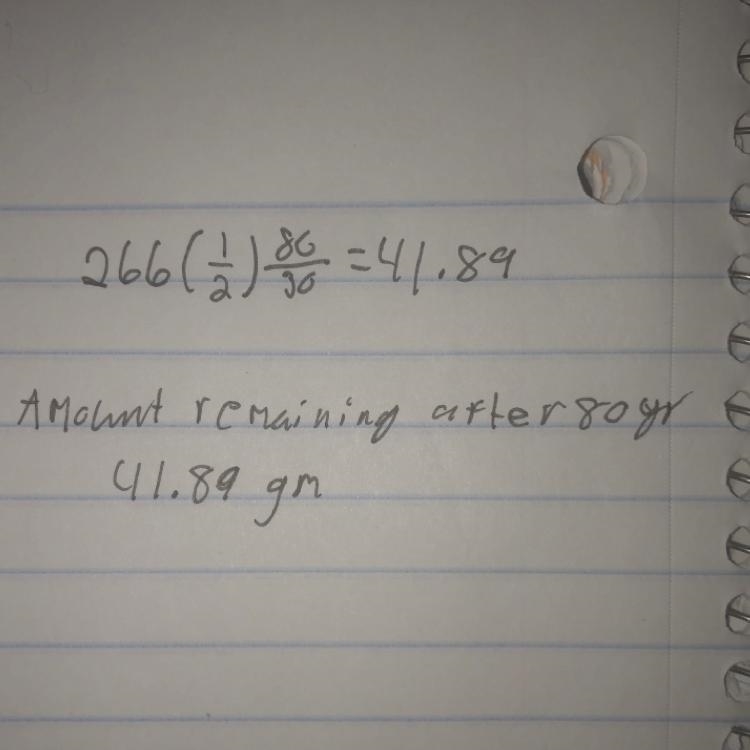 266(1/2)80/30 = 41.89
Amount remaining after 80 yr
41.89 gm